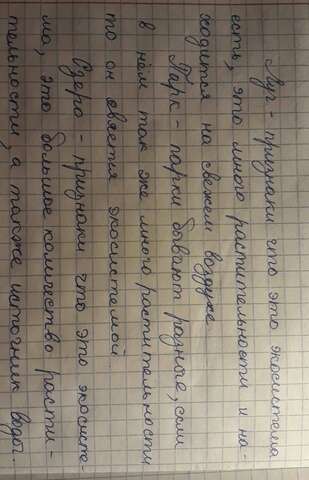 Луг - признаки что это экосистема
есть, это много растительности и на-
ходится на свежем воздухе
Парк - парки бывают разные, если
в нём так же много растительности
то он овяется экосистемой
Озеро - признаки что это экосисте-
ма, это большое количество расти-
тельности, а также источник воды.